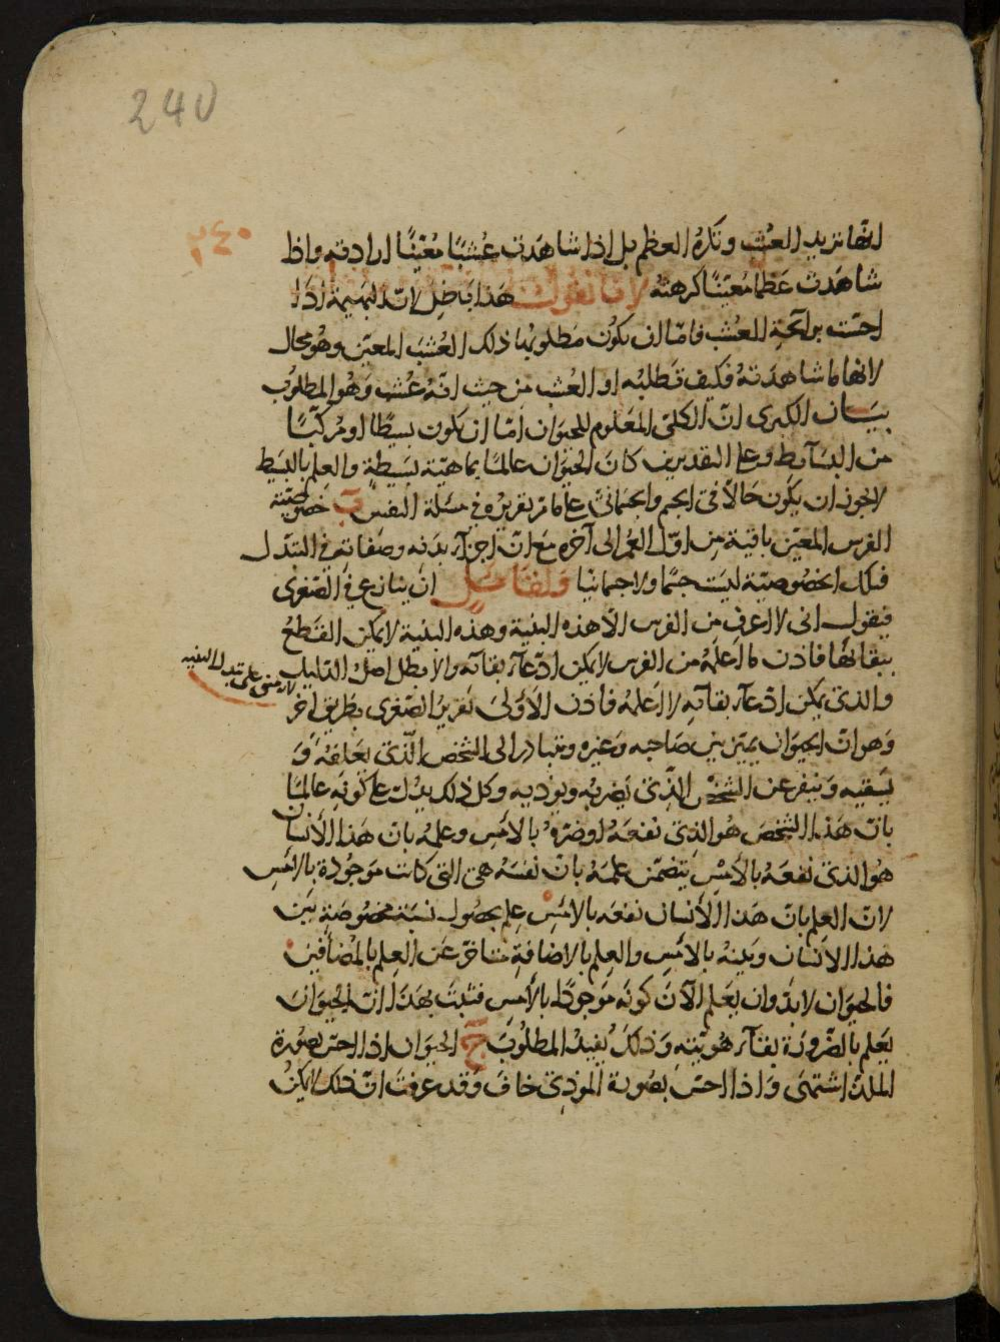 240
٢٤٠
انها تريد العشب وتكره العظم بل اذا شاهدت عُشبًا مُعيّنًا ارادته واذا
شاهدت عَظمًا مُعيّنًا كرهته لانا نقول هَذا باطل لانّ البهيمة اذا
احسّت برائحة العُشب فامّا ان يكون مَطلوبُها ذلك العُشبَ المعيّن وهو محال
لانها ما شاهدَتهُ فكيف تطلبُه او العُشب من حيث انّه عُشب وَهُو المطلوب
بيَان الكبرى انّ الكلّى المَعلوم للحيَوان امّا ان يكون بسيطًا او مُركّبًا
من البسَآيط وعلى التقديرين كان الحيَوان عالمًا بماهيّة بسيطةٍ والعِلم بالبسيط
لايجوز ان يكون حَالاً فى الجسم والجسمانىّ على ما مرّ تقريره فى مسئلة النفس ب خصُوصيّة
الفرس المعيّن باقية مِن اوّل العُمر الى آخره مع انّ اجزآء بدَنه وصفاته فى التبدّل
فتلك الخصُوصيّة ليست جسمًا ولا جسمانيا ولقائل ان ينازع فى الصّغرى
فيقول انى لا اعرف مِن الفرس الّا هذه البنية وهذه البنية لايمكن القَطعُ
ببقائها فاذن ما اعلمُهُ من الفرس لايمكن ادّعآء بقائه والا بطل اصل الدّليل
لانه مبنى على تبدل البنيه
والذى يمكن ادّعآء بقآئه لا اعلمهُ فاذن الاَوْلىَ تقريرُ الصّغرى بطريق آخر
وَهو انّ الحيوَان يميّز بين صَاحبه وغيره ويتبادر الى الشخص الّذى يعلفُه وَ
يَسقيه وَينفر عن الشّخص الّذى يَضربُه ويؤذيه وكل ذلك يدُلّ على كونه عالمًا
بانّ هَذا الشّخصَ هُوالذى نفعَهُ او ضرّهُ بالامْسِ وعلمُه بان هَذا الانسان
هُوالذى نفعَهُ بالاَمْسِ يتضمّن علمَهُ بانّ نفسَه هى التى كانت مَوجُودة بالامْسِ
لانّ العِلم بانّ هَذا الاَنسان نفعَه بالامْسِ عِلم بحصُول نسبَة مخصُوصَةٍ بين
هذا الانسان وبينهُ بالامْسِ والعِلم بالاضافةِ متاخرٌ عَن العِلم بالمُضافين
فالحيَوان لابدّ وان يَعلم الآنَ كونَه مَوجودًا بالأمسِ فثبتَ بهَذا انّ الحيَوانَ
يَعلم بالضّرورة بقآء هُويّتهِ وَذلك يُفيد المطلُوبَ ج الحيَوان اذا احسّ بصُورة
الملذّ اشتهَى وَاذا احسّ بصُورة المُوذى خافَ وَقد عرفتَ انّ ذلك لايمكنُ